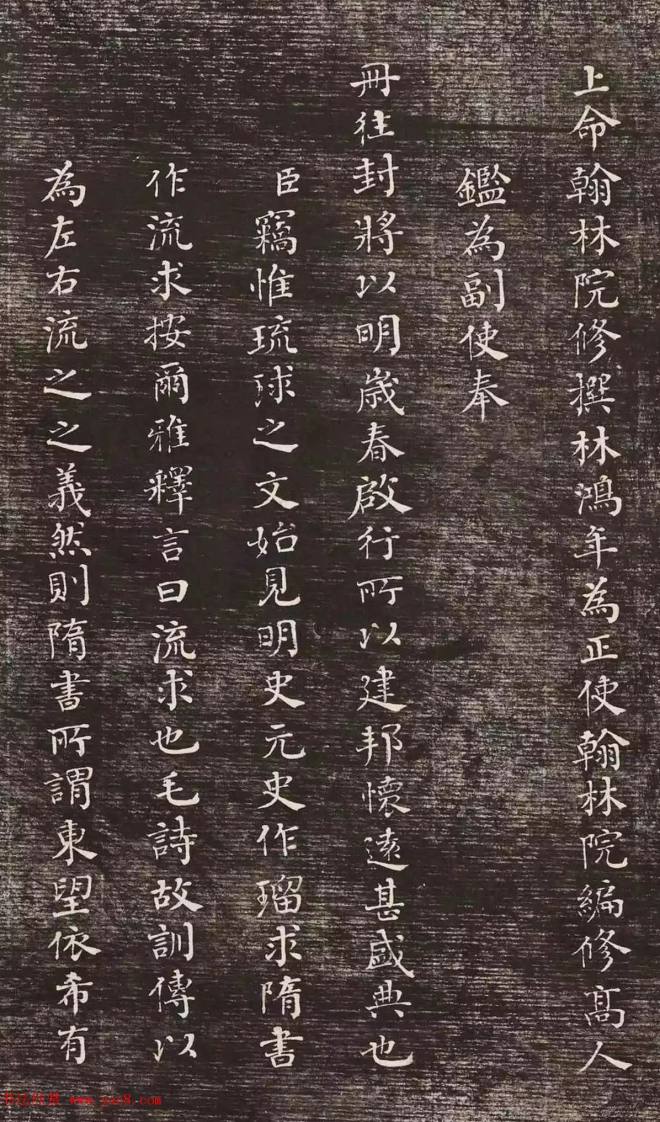 上命翰林院修撰林鴻年為正使翰林院編修高人
鑑為副使奉
冊往封將以明歲春啟行所以建邦懷遠甚盛典也
臣竊惟琉球之文始見明史元史作瑠求隋書
作流求按爾雅釋言曰流求也毛詩故訓傳以
為左右流之之義然則隋書所謂東望依希有